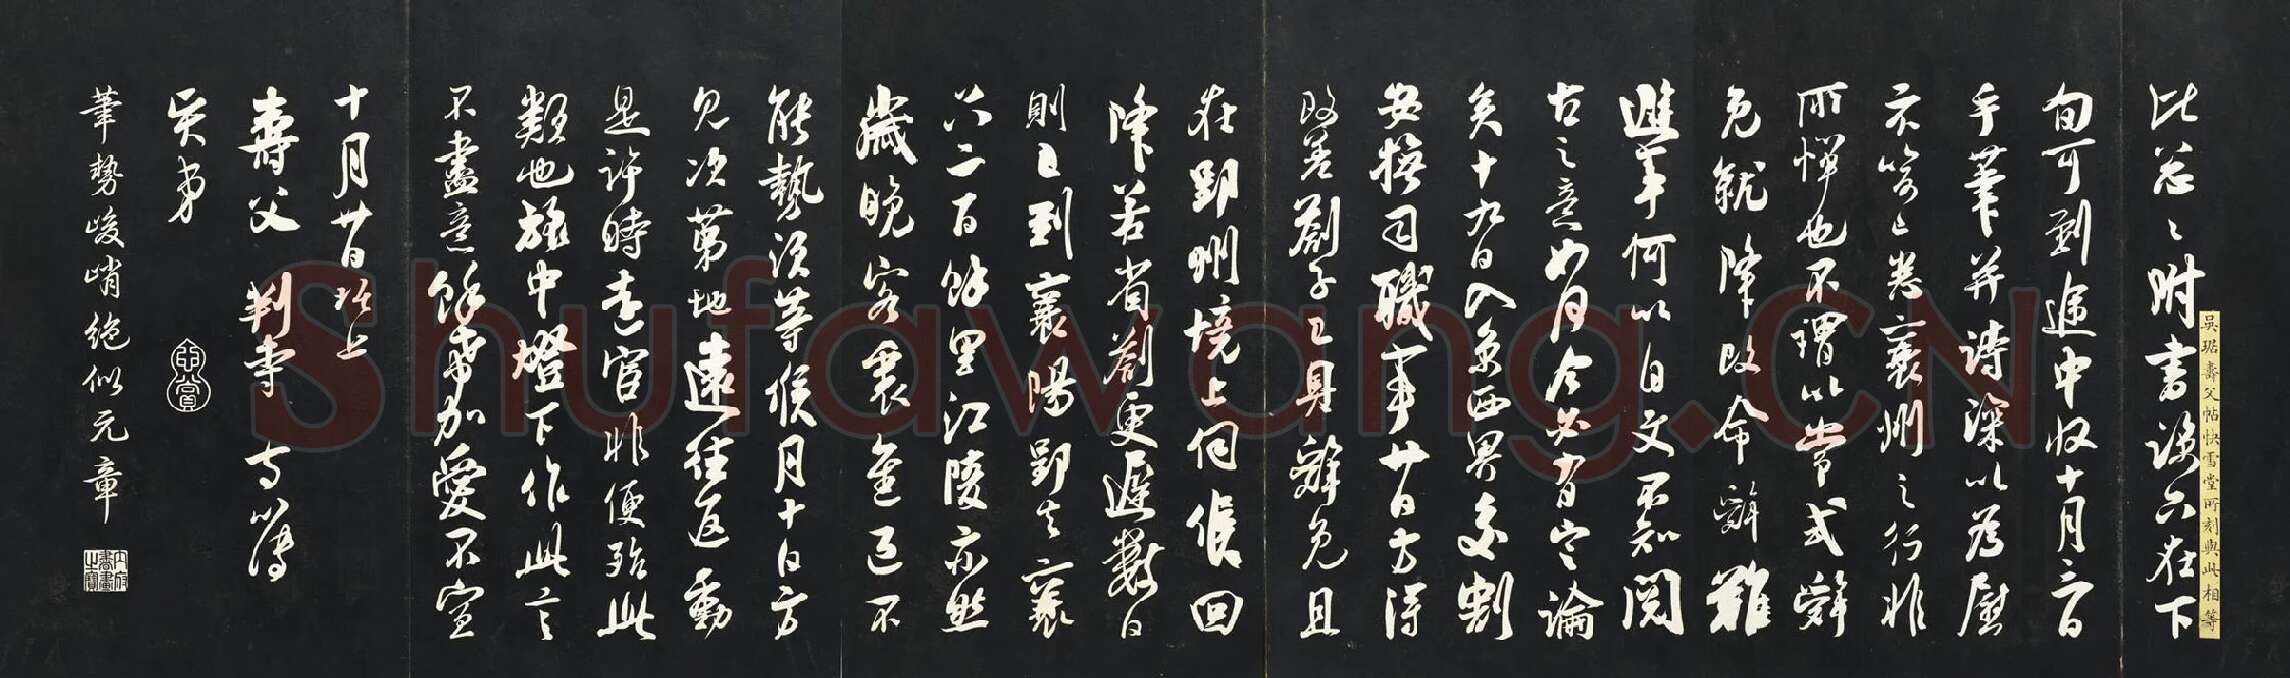 比忩々附書諒只在下
旬可到途中收十月六日
手筆并詩深以為慰
示諭已悉襄州之行非
所憚也不謂以常式辭
免就降改命辭難
避事何以自文不知閱
古之意如何今必有定論
矣十九日入京西界交割
安撫司職事廿日方得
改差劄子已具辭免且
在郢州境上伺候回
降若省劄更遲數日
則已到襄陽郢去襄
只二百餘里江陵亦然
歲晚客裏進退不
能勢須等候月十日方
見次第地遠往返動
是許時遠官非便殆此
類也旅中燈下作此言
不盡意餘希加愛不宣
十月廿日琚上
壽父判寺寺簿
賢弟
筆勢峻峭絕似元章
內府書畫之寶
吳琚壽父帖快雪堂所刻與此相等
Shufawang.CN